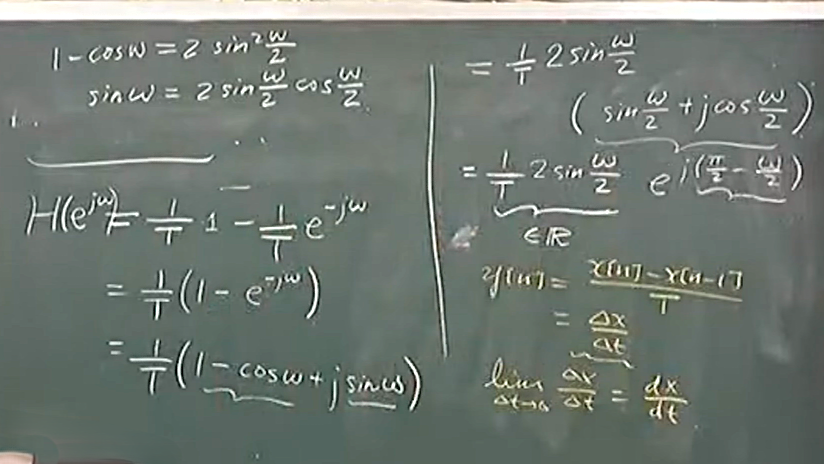 1 - cos ω = 2 sin² ω/2
sin ω = 2 sin ω/2 cos ω/2
H(e^{jω}) = 1/T 1 - 1/T e^{-jω}
= 1/T (1 - e^{-jω})
= 1/T (1 - cos ω + j sin ω)
= 1/T 2 sin ω/2
(sin ω/2 + j cos ω/2)
= 1/T 2 sin ω/2 e^{j(π/2 - ω/2)}
∈ ℝ
y[n] = x[n] - x[n-1] / T
= Δx/Δt
lim Δt→0 Δx/Δt = dx/dt